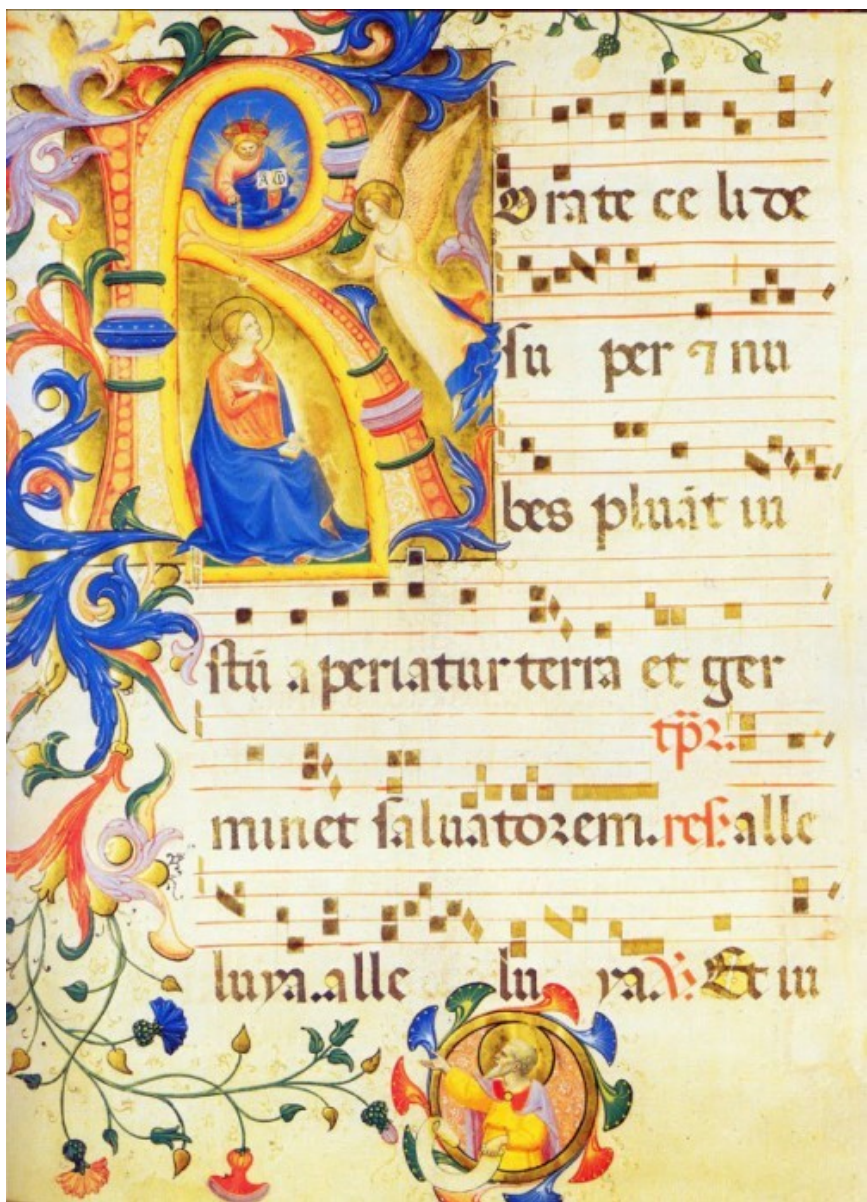 Rorate celi de
super ⁊ nu
bes pluāt iu
stū aperiatur terra et ger
tp̄r.
minet saluatorem. res: alle
luya. alle luya. V: Et in
A Ω